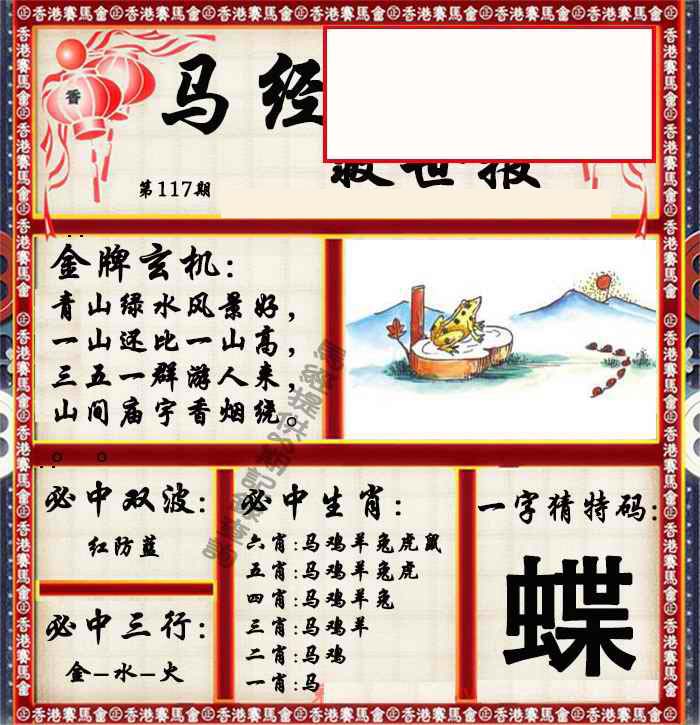 香港賽馬會
马经
救世报
第117期
香
金牌玄机:
青山绿水风景好,
一山还比一山高,
三五一群游人来,
山间庙宇香烟绕。
必中双波:
红防蓝
必中三行:
金-水-火
必中生肖:
六肖:马鸡羊兔虎鼠
五肖:马鸡羊兔虎
四肖:马鸡羊兔
三肖:马鸡羊
二肖:马鸡
一肖:马
一字猜特码:
蝶